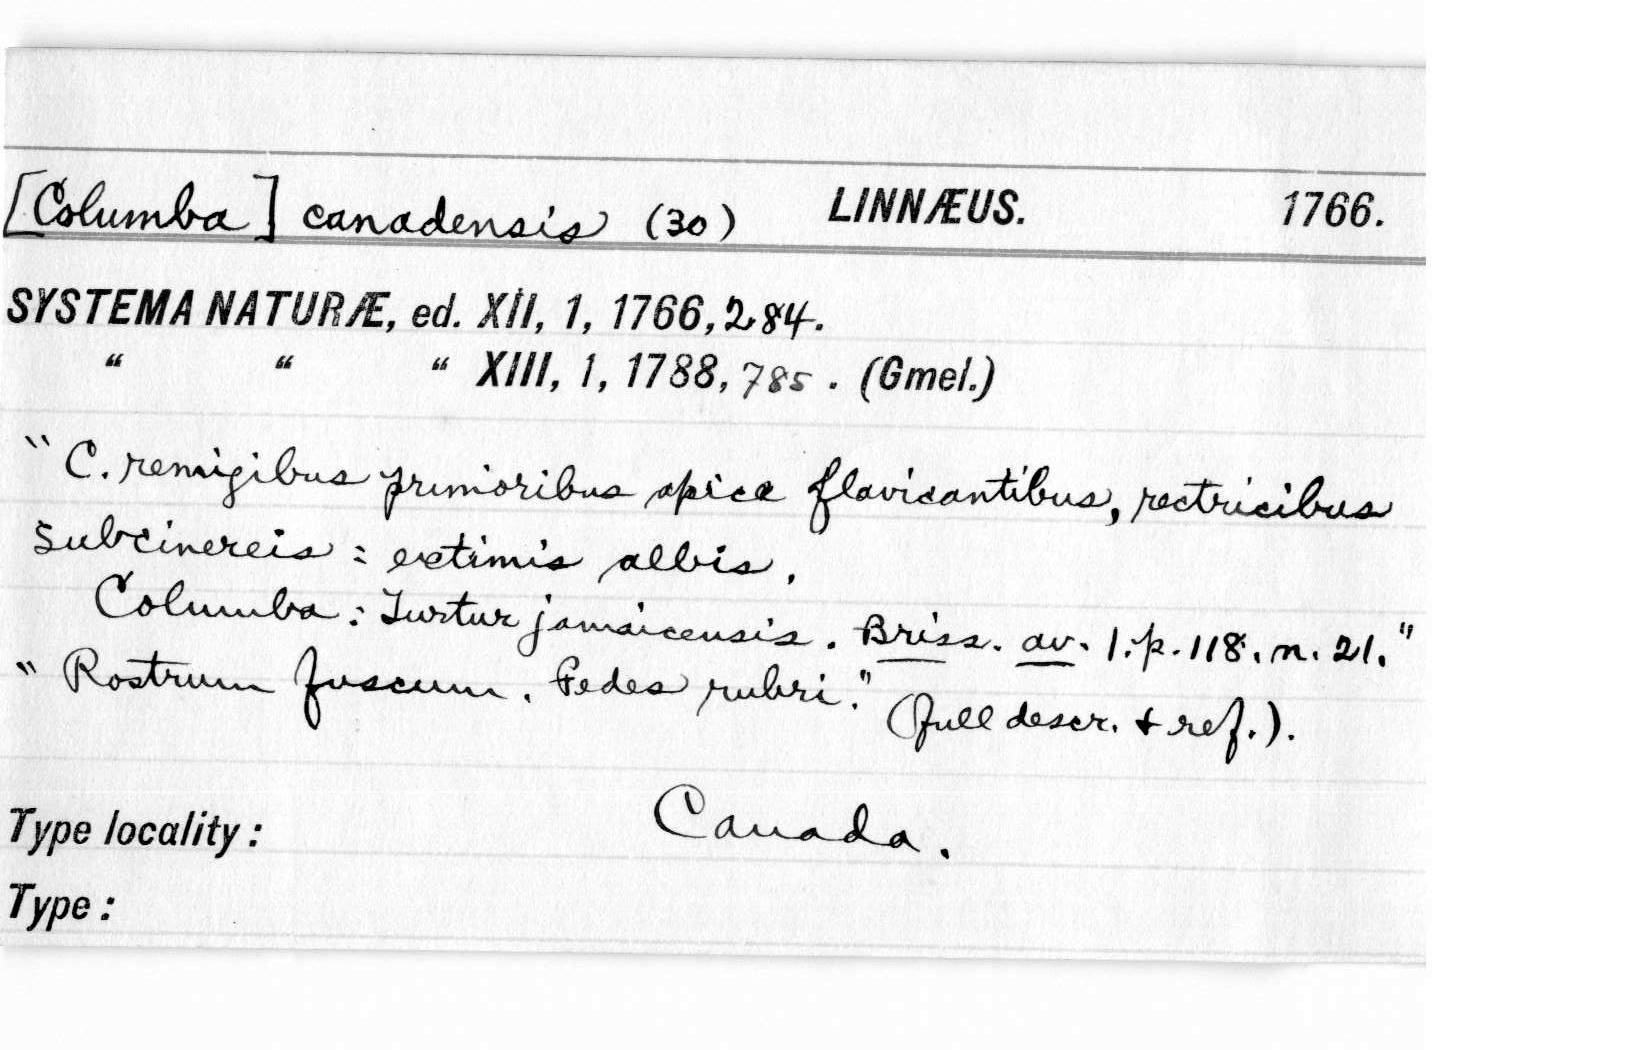 [Columba] canadensis (30) LINNÆUS. 1766.
SYSTEMA NATURÆ, ed. XII, 1, 1766, 284.
" " " XIII, 1, 1788, 785. (Gmel.)
"C. remigibus primoribus apice flavicantibus, rectricibus
subcinereis: extimis albis.
Columba: Turtur jamaicensis. Briss. av. 1. p. 118. n. 21."
"Rostrum fuscum. Pedes rubri." (full descr. + ref.).
Type locality: Canada.
Type: